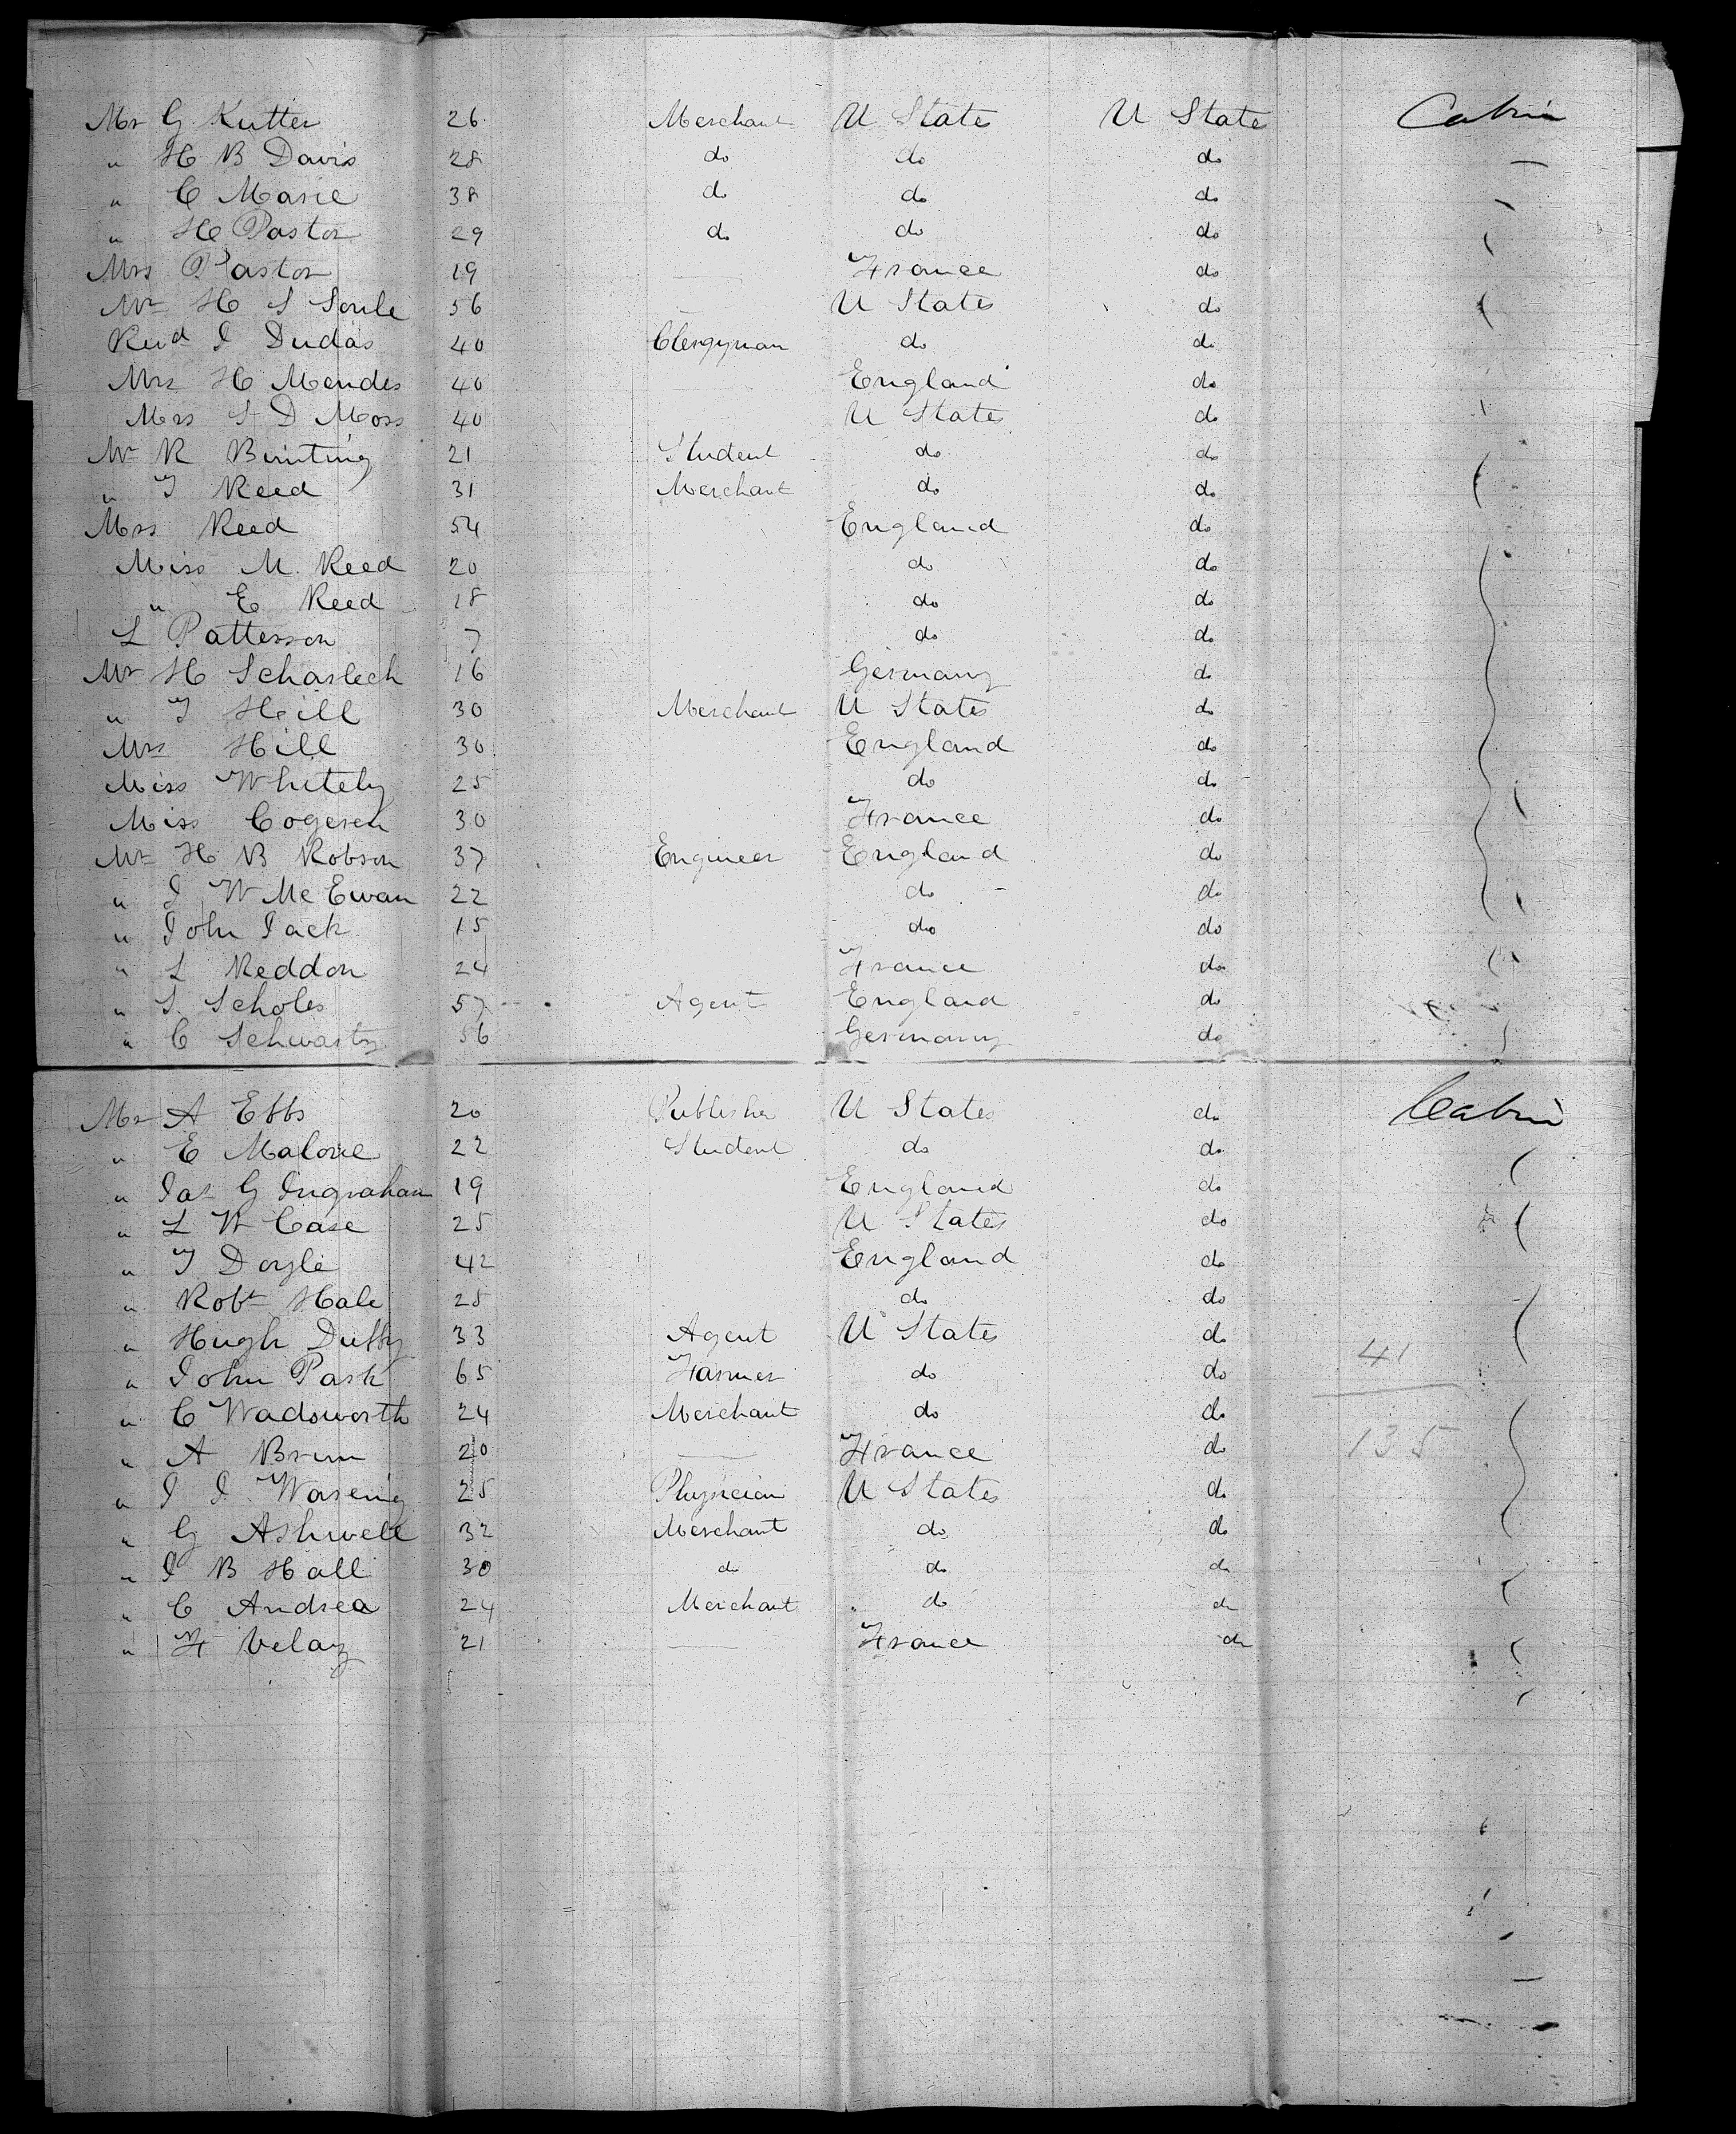 Mr G Kutter 26 Merchant U States U States Cabin
" H B Davis 28 do do do
" C Marie 38 do do do
" H Pastor 29 do do do
Mrs Pastor 19 — France do
Mr H S Soule 56 — U States do
Revd J Dudas 40 Clergyman do do
Mrs H Mendes 40 England do
Mrs S D Moss 40 U States do
Mr R Bunting 21 Student do do
" T Reed 31 Merchant do do
Mrs Reed 54 England do
Miss M. Reed 20 do do
" E Reed 18 do do
L Patterson 7 do do
Mr H Scharlech 16 Germany do
" T Hill 30 Merchant U States do
Mrs Hill 30 England do
Miss Whitely 25 do do
Miss Cogeren 30 France do
Mr H B Robson 37 Engineer England do
" J W Mc Ewan 22 do do
" John Jack 15 do do
" L Reddon 24 France do
" S. Scholes 57 Agent England do
" C Schwartz 56 Germany do
Mr A Ebbs 20 Publisher U States do Cabin
" E Malone 22 Student do do
" Jas G Ingraham 19 England do
" L W Case 25 U States do
" T Doyle 42 England do
" Robt Hale 25 do do
" Hugh Duffy 33 Agent U States do
41
" John Park 65 Farmer do do
" C Wadsworth 24 Merchant do do
" A Brun 20 — France do
135
" J J Wareing 25 Physician U States do
" G Ashwell 32 Merchant do do
" J B Hall 30 do do do
" C Andrea 24 Merchant do do
" F Velay 21 — France do